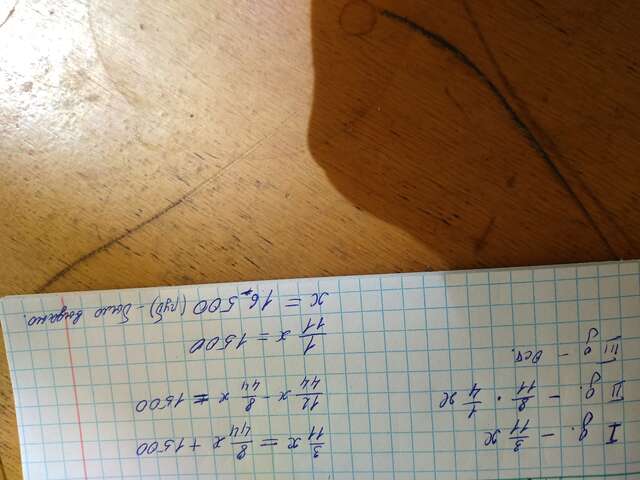 I д. – 3/11 x
II д. – 8/11 · 1/4 x
III д – ост.
3/11 x = 8/44 x + 1500
12/44 x – 8/44 x = 1500
1/11 x = 1500
x = 16 500 (руб) – было выдано.